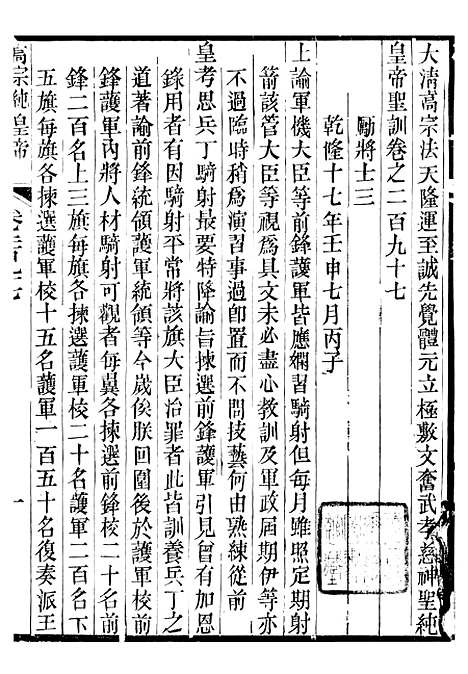 大清高宗法天隆運至誠先覺體元立極敷文奮武孝慈神聖純
皇帝聖訓卷之二百九十七
勵將士三
乾隆十七年壬申七月丙子
上諭軍機大臣等前鋒護軍皆應嫻習騎射但每月雖照定期射
箭該管大臣等視爲具文未必盡心教訓及軍政届期伊等亦
不過臨時稍爲演習事過卽置而不問技藝何由熟練從前
皇考恩兵丁騎射廢弛特降諭旨揀選前鋒護軍引見曾有加恩
錄用者有因騎射平常將該旗大臣治罪者此皆訓養兵丁之
道著諭前鋒統領護軍統領等今歲俟朕回圍後於護軍校前
鋒護軍內將人材騎射可觀者每翼各揀選前鋒校二十名前
鋒二百名上三旗每旗各揀選護軍校二十名護軍二百名下
五旗每旗各揀選護軍校十五名護軍一百五十名復奏派王
高宗純皇帝
一